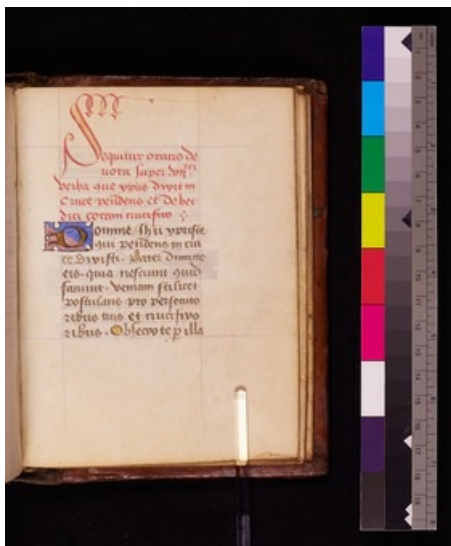 Sequitur oratio de
uota super
verba que xp̄us dixit in
Cruce pendens et debet
dici coram crucifixo
Domine Ih̄u xp̄iste
qui pendens in cru
ce dixisti. Pater dimitte
eis. quia nesciunt quid
faciunt. veniam scilicet
postulans pro persecuto
ribus tuis et crucifixo
ribus. Obsecro te p illa